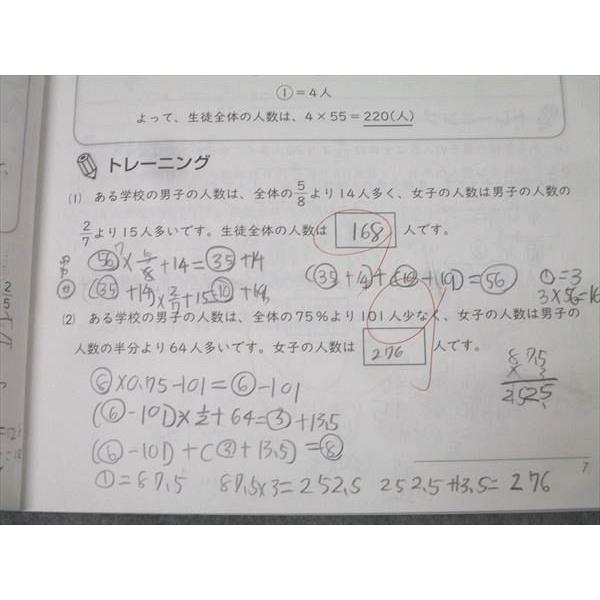 ①=4人
よって、生徒全体の人数は、4×55=220(人)
トレーニング
(1) ある学校の男子の人数は、全体の5/8より14人多く、女子の人数は男子の人数の
2/7より15人多いです。生徒全体の人数は 168 人です。
㊺×5/8+14=㉟+14
(㉟+14)×2/7+15=⑩+19
(㉟+14)+(⑩+19)=56
①=3
3×56=16
(2) ある学校の男子の人数は、全体の75%より101人少なく、女子の人数は男子の
人数の半分より64人多いです。女子の人数は 276 人です。
⑧×0.75-101=⑥-101
(⑥-101)×1/2+64=③+13.5
(⑥-101)+(③+13.5)=⑧
①=87.5 87.5×3=252.5 252.5+13.5=276
87.5
× 3
252.5
7
2/5